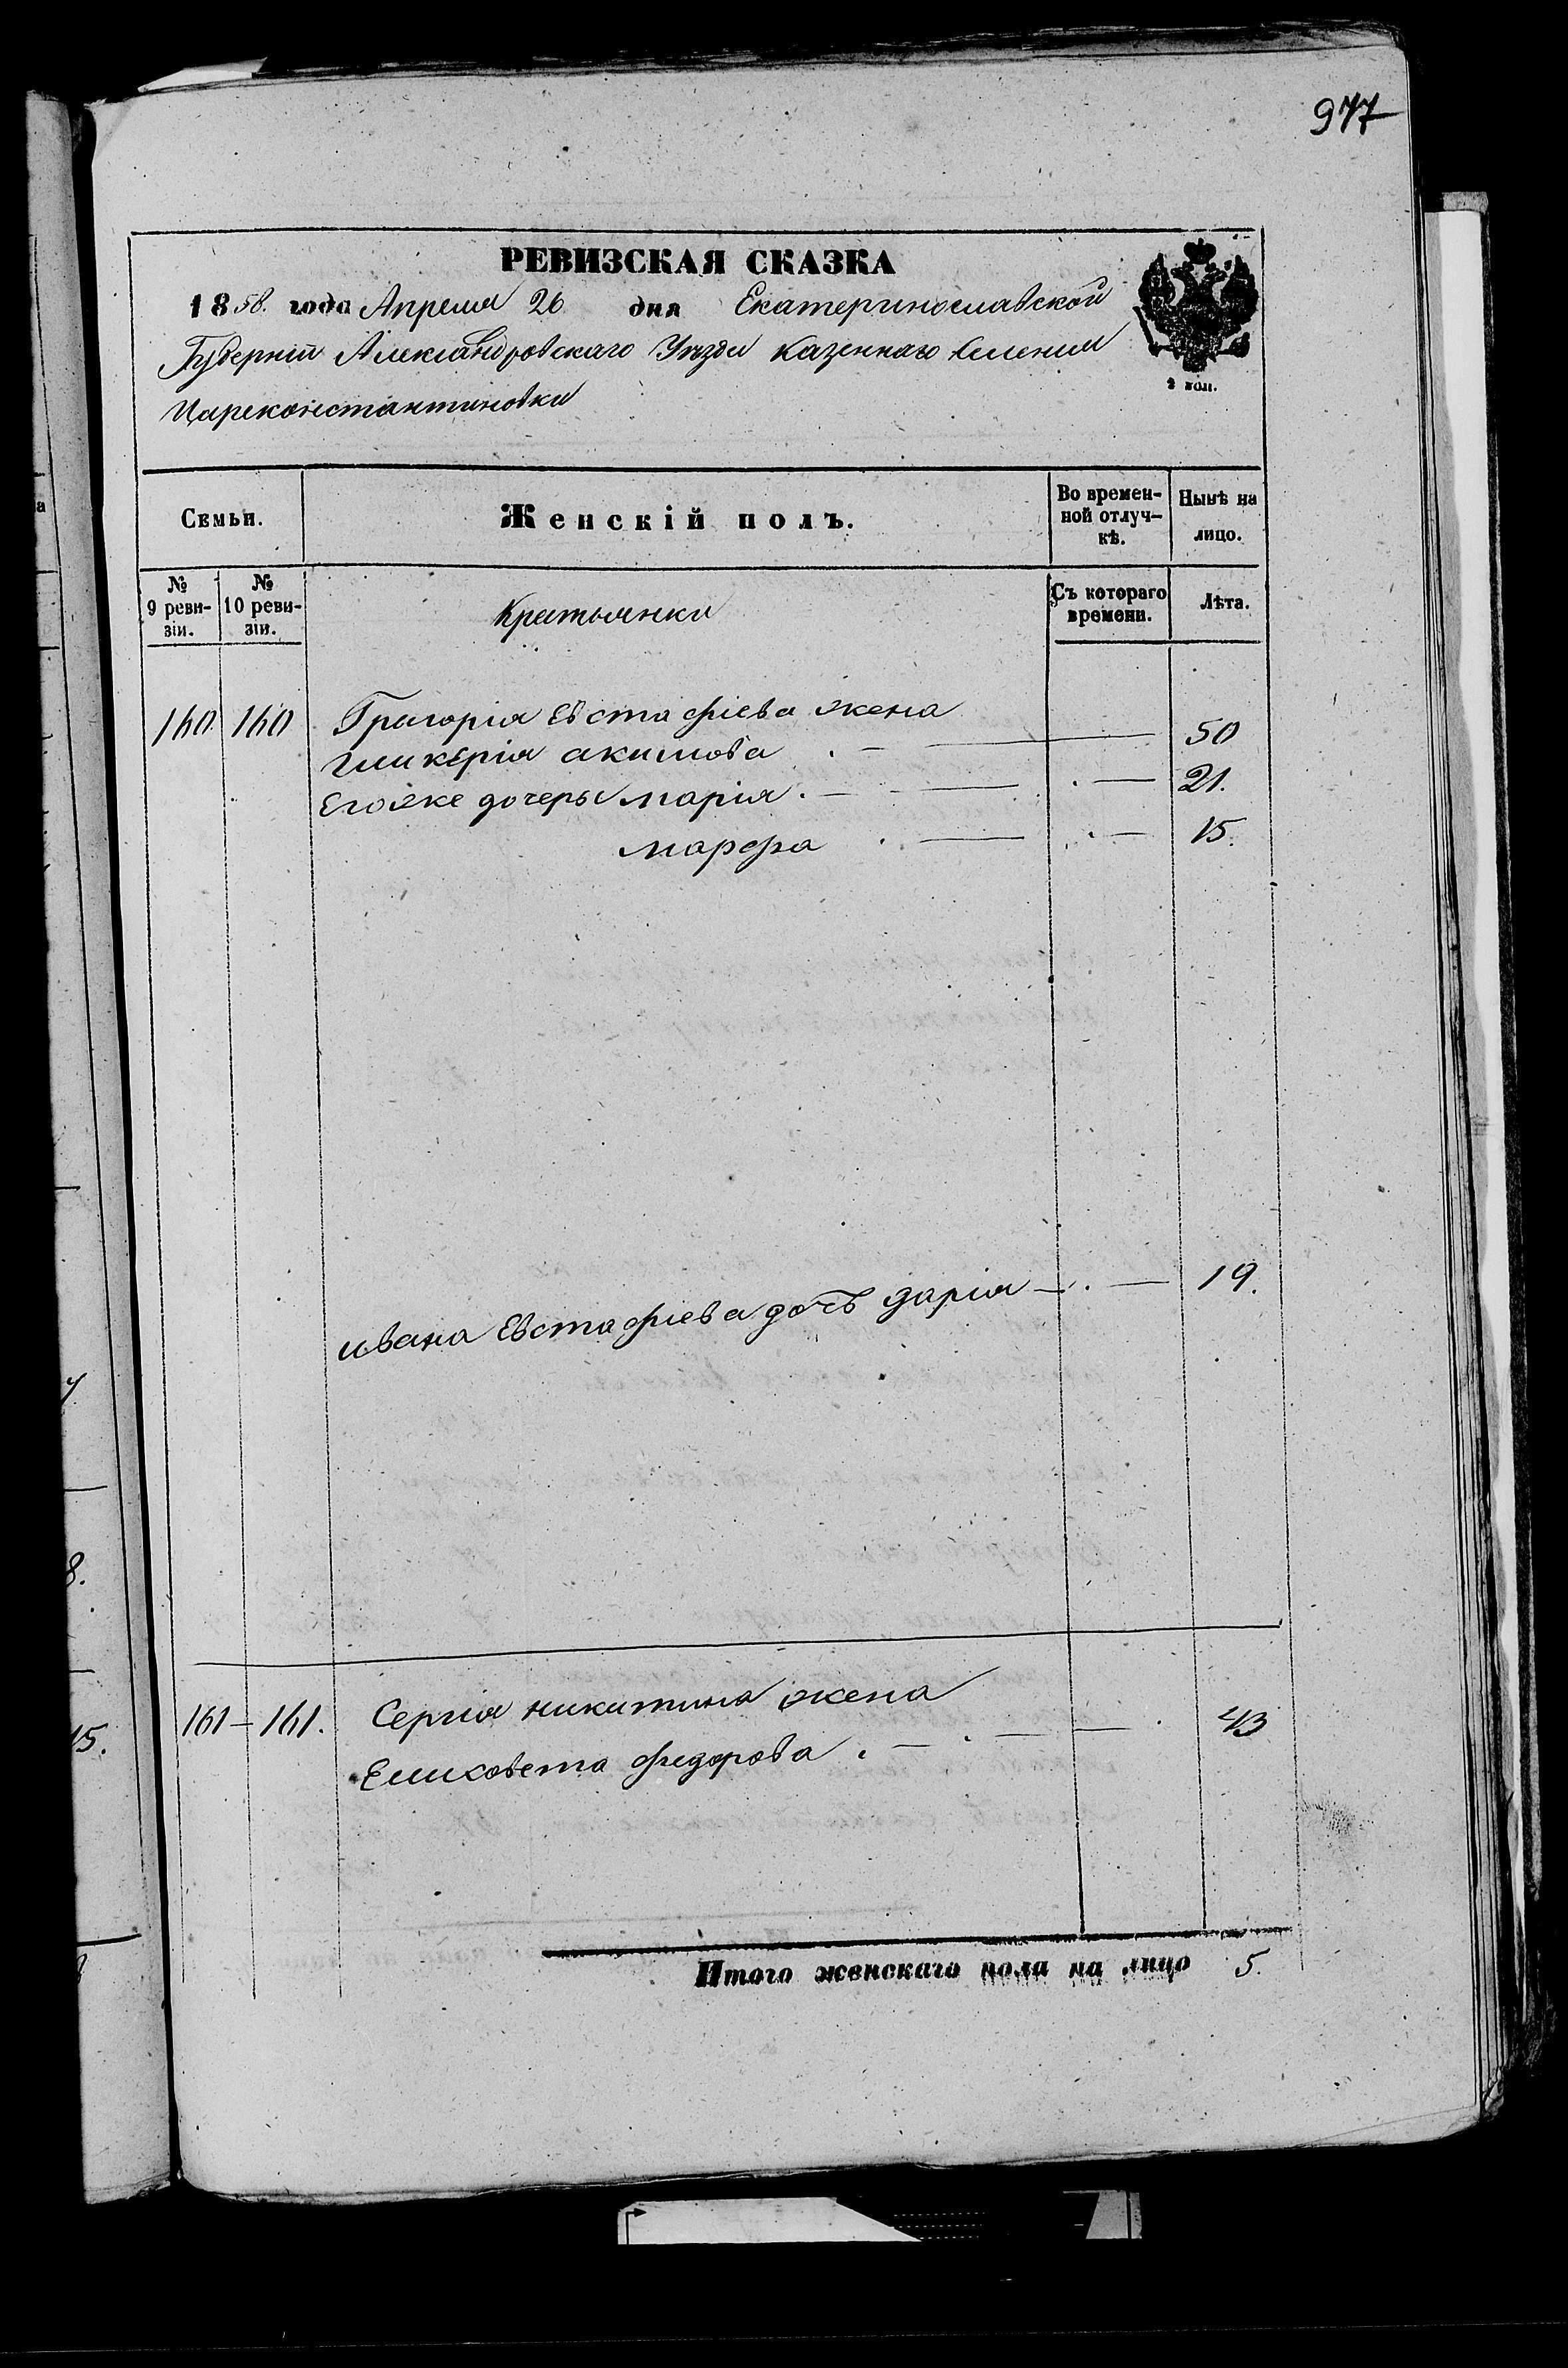 977
РЕВИЗСКАЯ СКАЗКА
1858. года Апреля 26 дня Екатеринославской
Губерніи Александровскаго Уезда Казеннаго Селения
Цареконстантиновки
2 коп.
Семьи. Женскій полъ. Во времен- Нынѣ на
ной отлуч- лицо.
кѣ.
№ № Съ котораго Лѣта.
9 реви- 10 реви- Крестьянки времени.
зіи. зіи.
160. 160 Григорія Евстафіева жена
Гликерія Акимова 50
Егоже дочеры Марія 21.
Марфа 15.
Ивана Евстафіева дочъ Дарія 19.
161 – 161. Сергія Никитина жена
Елисовета Федорова 43
Итого женскаго пола на лицо 5.